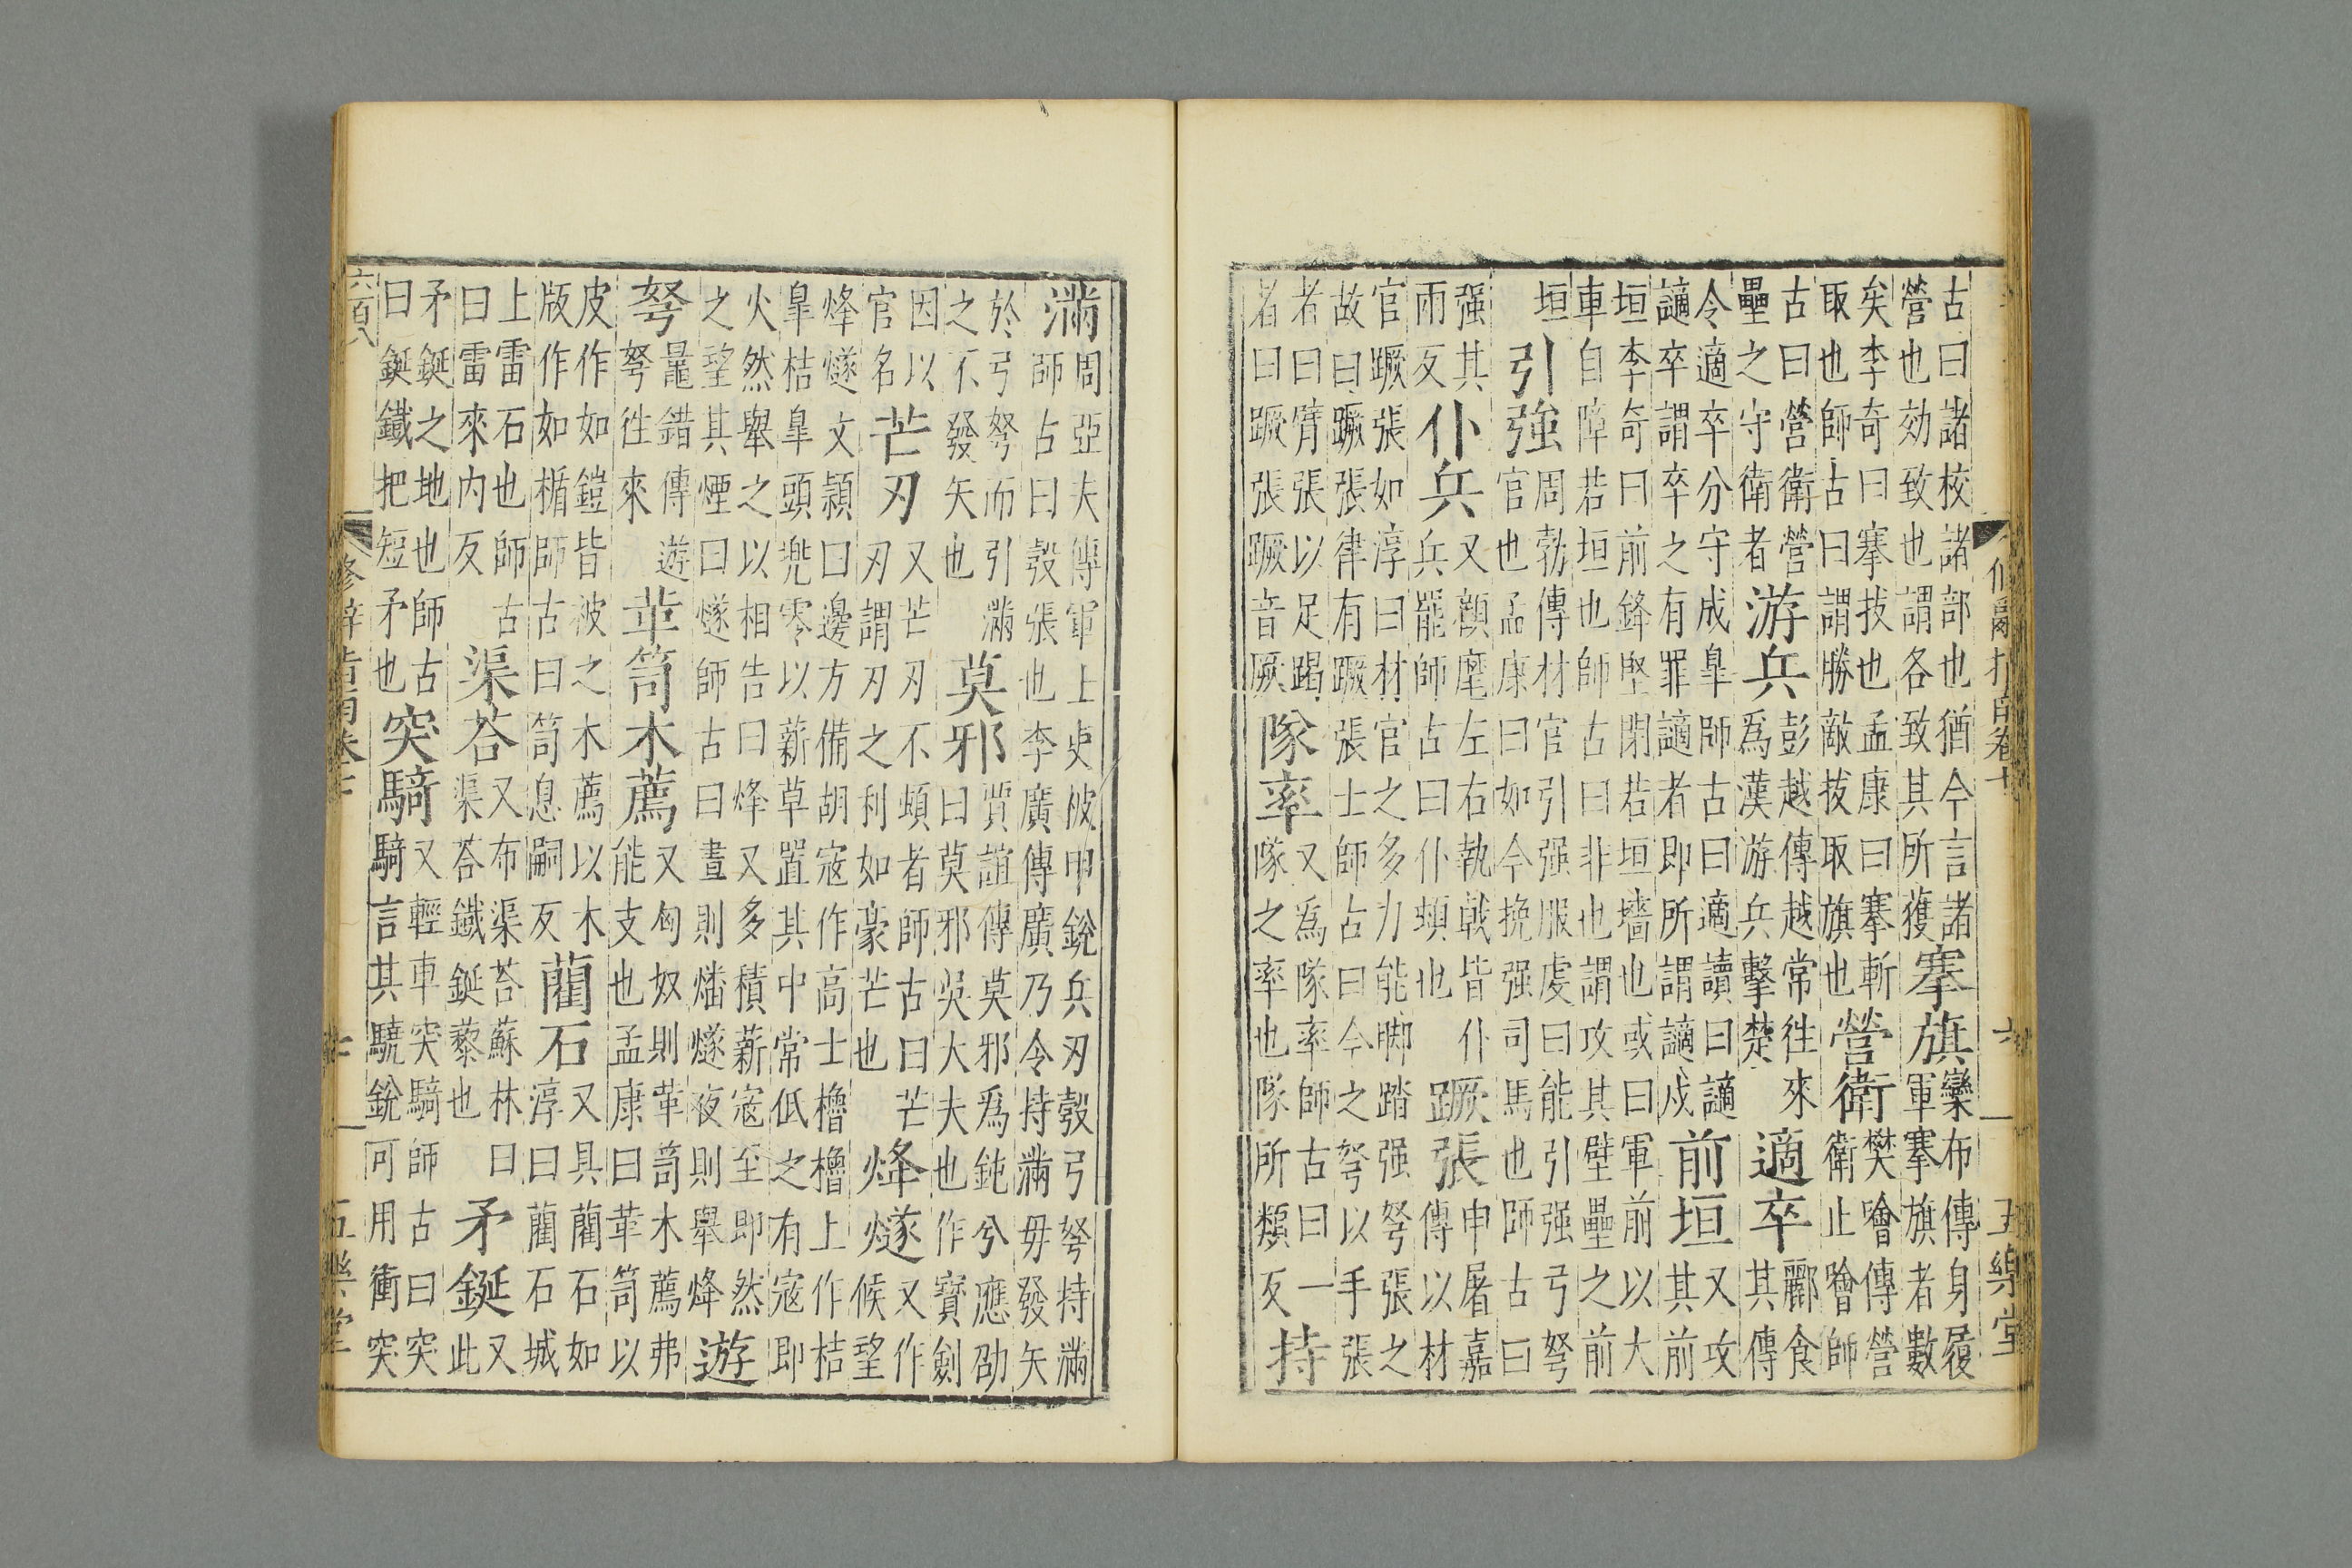 修辭指南卷十 六 五樂堂
古曰諸校諸部也猶今言諸營也効致也謂各致其所獲搴旗欒布傳身履軍搴旗者數
矣李奇曰搴拔也孟康曰搴斬取也師古曰謂勝敵拔取旗也營衛樊噲傳營衛止噲師
古曰營衛營壘之守衛者游兵彭越傳越常往來為漢游兵擊楚適卒酈食其傳
令適卒分守成皐師古曰適讀曰讁讁卒謂卒之有罪讁者即所謂讁戍前垣又攻其前
垣李奇曰前鋒堅閉若垣墻也或曰軍前以大車自障若垣也師古曰非也謂攻其壁壘之前
垣引強周勃傳材官引强服虔曰能引强弓弩官也孟康曰如今挽强司馬也師古曰
强其兩反仆兵又顔麾左右執戟皆仆兵兵罷師古曰仆頓也蹶張申屠嘉傳以材
官蹶張如淳曰材官之多力能脚踏强弩張之故曰蹶張律有蹶張士師古曰今之弩以手張
者曰臂張以足蹋者曰蹶張蹶音厥隊率又為隊率師古曰一隊之率也隊所類反持
滿周亞夫傳軍士吏被甲銳兵刃彀弓弩持滿師古曰彀張也李廣傳廣乃令持滿毋發矢
於弓弩而引滿之不發矢也莫邪賈誼傳莫邪為鈍兮應劭曰莫邪吳大夫也作寶劍
因以官名芒刃又芒刃不頓者師古曰芒刃謂刃之利如豪芒也烽燧又作候望
烽燧文穎曰邊方備胡寇作高士櫓櫓上作桔皐桔皐頭兠零以薪草置其中常低之有寇即
火然舉之以相告曰烽又多積薪寇至即然之望其煙曰燧師古曰晝則燔燧夜則舉烽遊
弩鼂錯傳遊弩往來革笥木薦又匈奴則革笥木薦弗能支也孟康曰革笥以
皮作如鎧皆被之木薦以木版作如楯師古曰笥息嗣反藺石又具藺石如淳曰藺石城
上雷石也師古曰雷來內反渠荅又布渠荅蘇林曰渠荅鐵鋌藜也矛鋋又此
矛鋋之地也師古曰鋋鐵把短矛也突騎又輕車突騎師古曰突騎言其驍銳可用衝突
六百八 修辭指南卷十 七 五樂堂